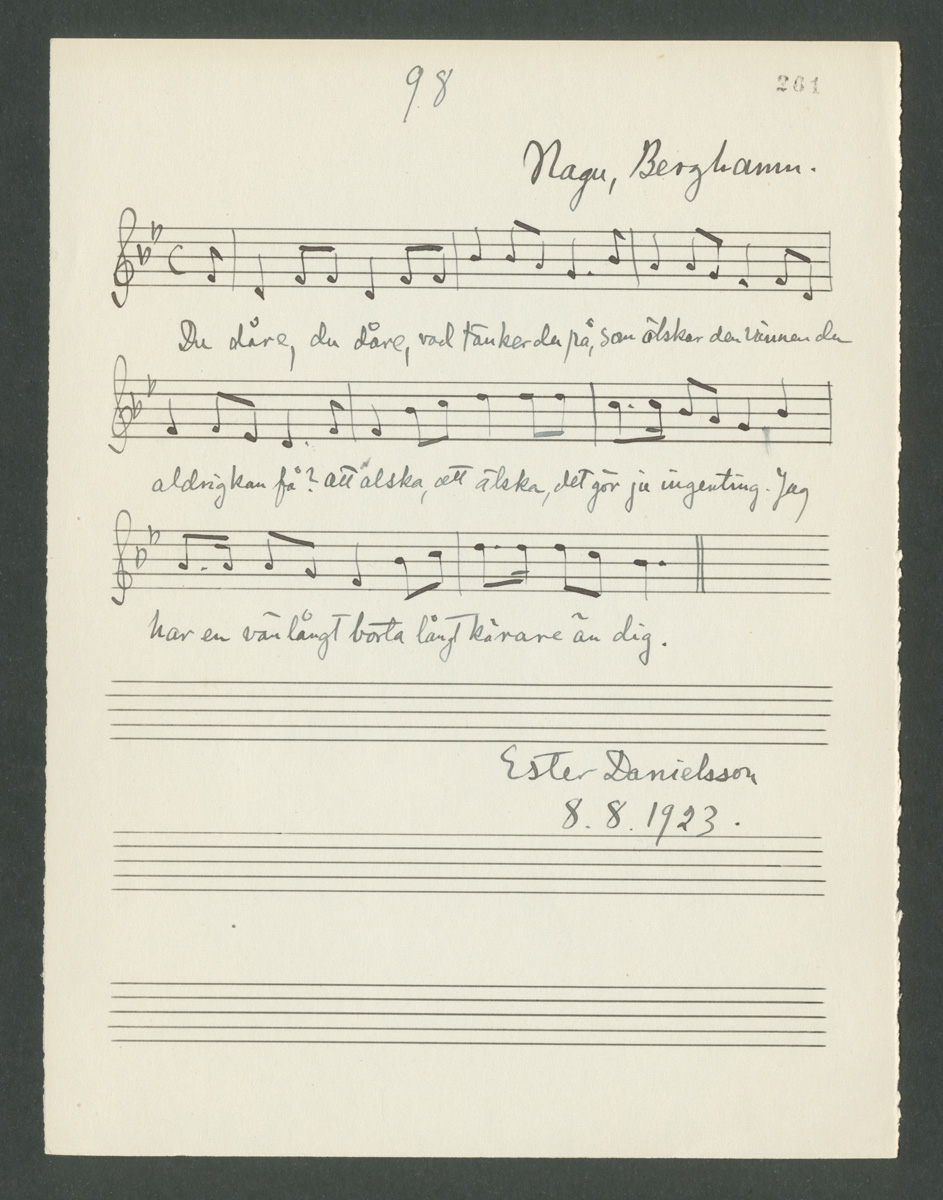 98
261
Nagu, Berghamn.
Du dåre, du dåre, vad tänker du på, som älskar den vännen du
aldrig kan få? att älska, att älska, det gör ju ingenting. Jag
har en vän långt borta långt kärare än dig.
Ester Danielsson
8. 8. 1923.